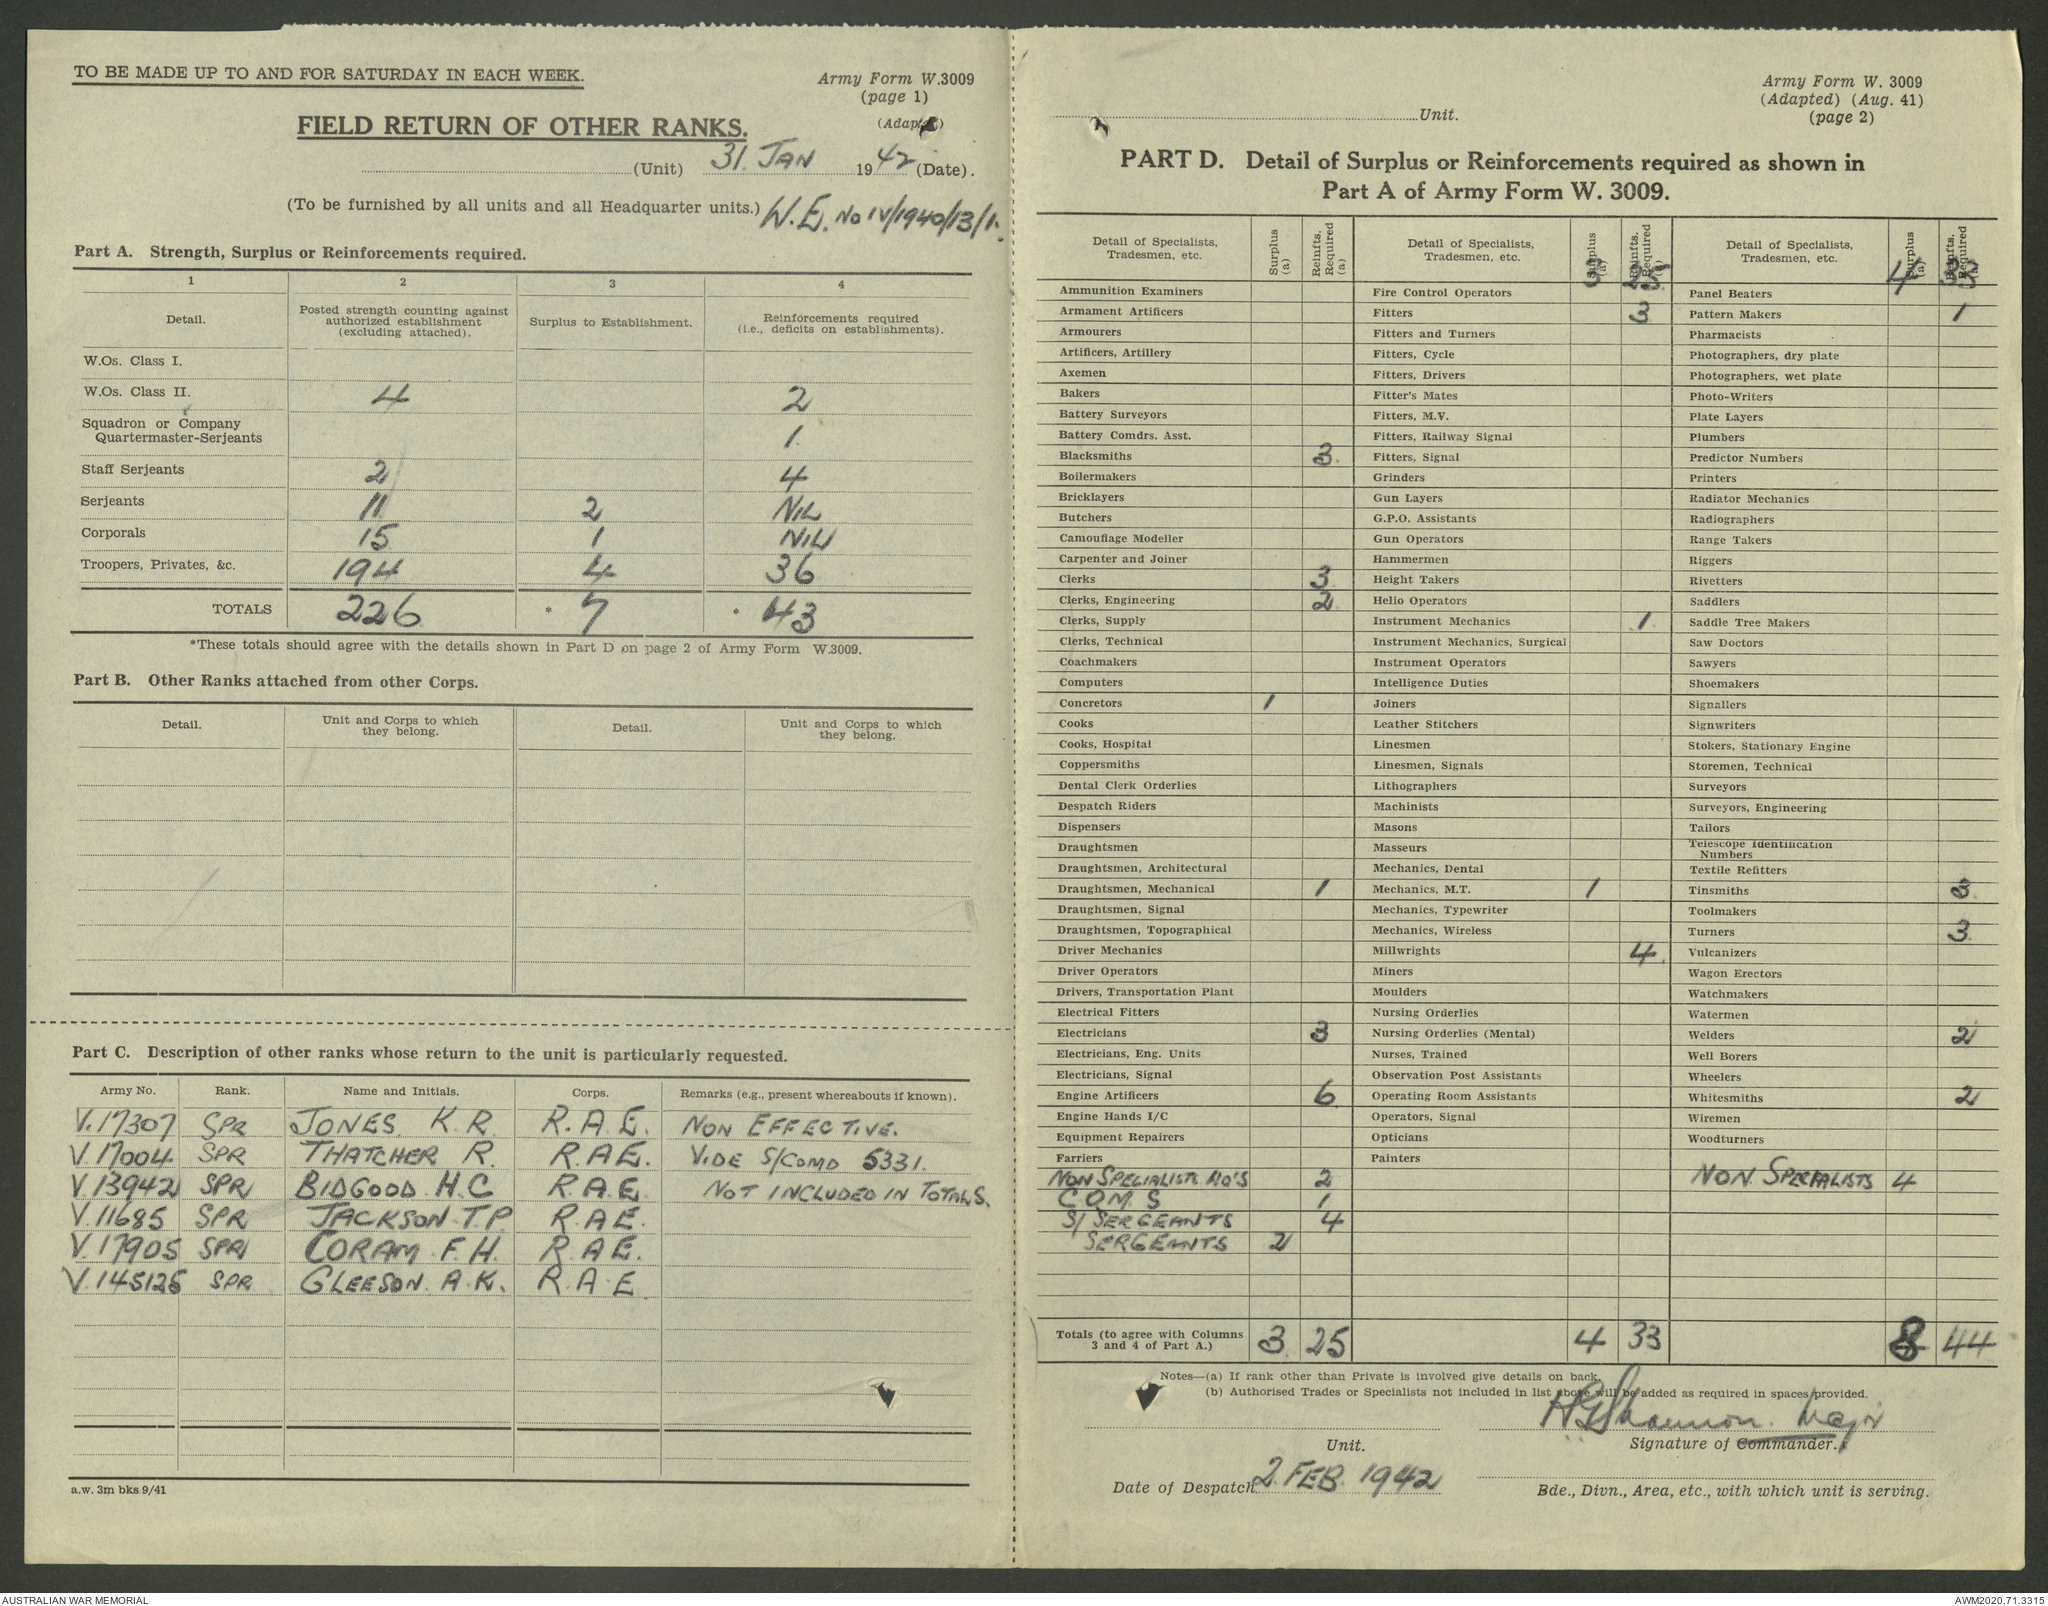 TO BE MADE UP TO AND FOR SATURDAY IN EACH WEEK.
Army Form W.3009
(page 1)
(Adapted)
FIELD RETURN OF OTHER RANKS.
(Unit) 31. JAN 1942 (Date).
(To be furnished by all units and all Headquarter units.) W.E. No IV/1940/13/1.
Part A. Strength, Surplus or Reinforcements required.
1 2 3 4
Detail. Posted strength counting against authorized establishment (excluding attached). Surplus to Establishment. Reinforcements required (i.e., deficits on establishments).
W.Os. Class I.
W.Os. Class II. 4 2
Squadron or Company Quartermaster-Serjeants 1
Staff Serjeants 2 4
Serjeants 11 2 NIL
Corporals 15 1 NIL
Troopers, Privates, &c. 194 4 36
TOTALS 226 * 7 * 43
*These totals should agree with the details shown in Part D on page 2 of Army Form W.3009.
Part B. Other Ranks attached from other Corps.
Detail. Unit and Corps to which they belong. Detail. Unit and Corps to which they belong.
Part C. Description of other ranks whose return to the unit is particularly requested.
Army No. Rank. Name and Initials. Corps. Remarks (e.g., present whereabouts if known).
V.17307 SPR JONES K.R R.A.E. NON EFFECTIVE.
V.17004 SPR THATCHER R. R.A.E. VIDE S/COMD 5331.
V.13942 SPR BIDGOOD H.C R.A.E. NOT INCLUDED IN TOTALS.
V.11685 SPR JACKSON T.P R.A.E.
V.17905 SPR CORAM F.H. R.A.E.
V.145125 SPR GLEESON A.K. R.A.E.
a.w. 3m bks 9/41
Army Form W. 3009
(Adapted) (Aug. 41)
(page 2)
Unit.
PART D. Detail of Surplus or Reinforcements required as shown in
Part A of Army Form W. 3009.
Detail of Specialists, Tradesmen, etc. Surplus (a) Reinfts. Required (a)
Ammunition Examiners
Armament Artificers
Armourers
Artificers, Artillery
Axemen
Bakers
Battery Surveyors
Battery Comdrs. Asst.
Blacksmiths 3
Boilermakers
Bricklayers
Butchers
Camouflage Modeller
Carpenter and Joiner
Clerks 3
Clerks, Engineering 2
Clerks, Supply
Clerks, Technical
Coachmakers
Computers
Concretors 1
Cooks
Cooks, Hospital
Coppersmiths
Dental Clerk Orderlies
Despatch Riders
Dispensers
Draughtsmen
Draughtsmen, Architectural
Draughtsmen, Mechanical 1
Draughtsmen, Signal
Draughtsmen, Topographical
Driver Mechanics
Driver Operators
Drivers, Transportation Plant
Electrical Fitters
Electricians 3
Electricians, Eng. Units
Electricians, Signal
Engine Artificers 6
Engine Hands I/C
Equipment Repairers
Farriers
NON SPECIALISTS 2
C.Q.M.S 1
S/SERGEANTS 4
SERGEANTS 2
Totals (to agree with Columns 3 and 4 of Part A.) 3 25
Detail of Specialists, Tradesmen, etc. Surplus (a) Reinfts. Required (a)
3 25
Fire Control Operators
Fitters 3
Fitters and Turners
Fitters, Cycle
Fitters, Drivers
Fitter's Mates
Fitters, M.V.
Fitters, Railway Signal
Fitters, Signal
Grinders
Gun Layers
G.P.O. Assistants
Gun Operators
Hammermen
Height Takers
Helio Operators
Instrument Mechanics 1
Instrument Mechanics, Surgical
Instrument Operators
Intelligence Duties
Joiners
Leather Stitchers
Linesmen
Linesmen, Signals
Lithographers
Machinists
Masons
Masseurs
Mechanics, Dental
Mechanics, M.T. 1
Mechanics, Typewriter
Mechanics, Wireless
Millwrights 4
Miners
Moulders
Nursing Orderlies
Nursing Orderlies (Mental)
Nurses, Trained
Observation Post Assistants
Operating Room Assistants
Operators, Signal
Opticians
Painters
4 33
Detail of Specialists, Tradesmen, etc. Surplus (a) Reinfts. Required (a)
4 33
Panel Beaters
Pattern Makers 1
Pharmacists
Photographers, dry plate
Photographers, wet plate
Photo-Writers
Plate Layers
Plumbers
Predictor Numbers
Printers
Radiator Mechanics
Radiographers
Range Takers
Riggers
Rivetters
Saddlers
Saddle Tree Makers
Saw Doctors
Sawyers
Shoemakers
Signallers
Signwriters
Stokers, Stationary Engine
Storemen, Technical
Surveyors
Surveyors, Engineering
Tailors
Telescope Identification Numbers
Textile Refitters
Tinsmiths 3
Toolmakers
Turners 3
Vulcanizers
Wagon Erectors
Watchmakers
Watermen
Welders 2
Well Borers
Wheelers
Whitesmiths 2
Wiremen
Woodturners
NON SPECIALISTS 4
8 44
Notes—(a) If rank other than Private is involved give details on back.
(b) Authorised Trades or Specialists not included in list above will be added as required in spaces provided.
HGShannon. Major
Unit. Signature of Commander.
Date of Despatch 2. FEB. 1942
Bde., Divn., Area, etc., with which unit is serving.
AUSTRALIAN WAR MEMORIAL
AWM2020.71.3315